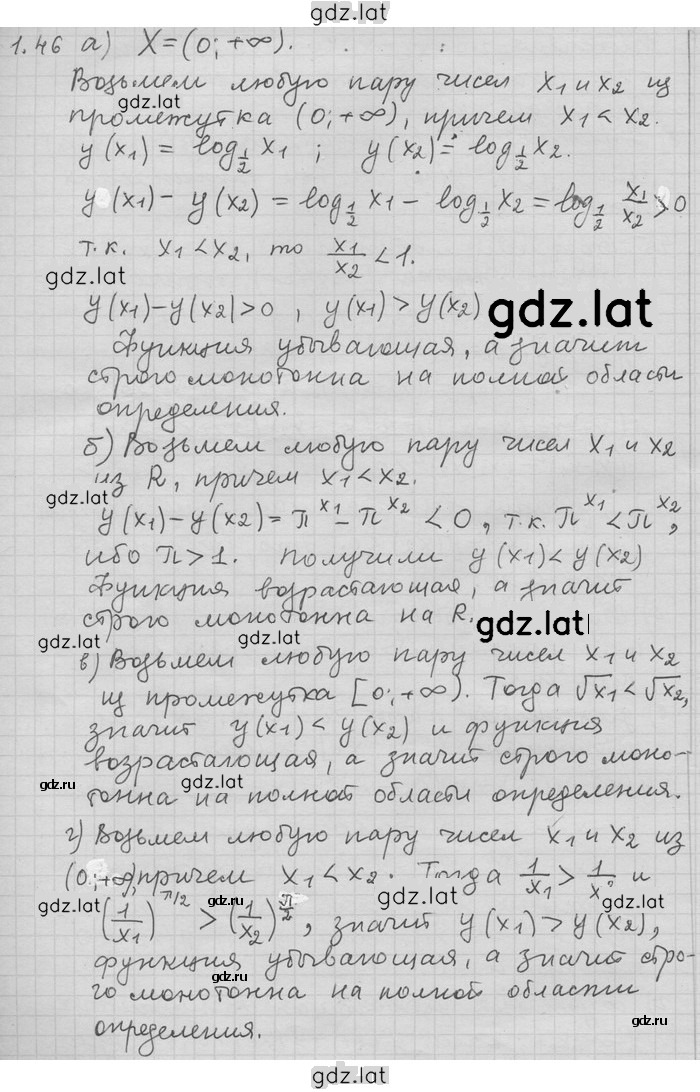 gdz.lat
1.46 а) X=(0;+∞).
Возьмем любую пару чисел x₁ и x₂ из
gdz.lat
промежутка (0;+∞), причем x₁ < x₂.
y(x₁) = log_{1/2} x₁ ; y(x₂) = log_{1/2} x₂.
y(x₁) - y(x₂) = log_{1/2} x₁ - log_{1/2} x₂ = log_{1/2} x₁/x₂ > 0
т.к. x₁ < x₂, то x₁/x₂ < 1.
gdz.lat
y(x₁)-y(x₂)>0 , y(x₁) > y(x₂)
gdz.lat
Функция убывающая, а значит
строго монотонна на полной области
определения.
б) Возьмем любую пару чисел x₁ и x₂
из R, причем x₁ < x₂.
gdz.lat
y(x₁)-y(x₂) = π^{x₁} - π^{x₂} < 0, т.к. π^{x₁} < π^{x₂},
ибо π > 1. получили y(x₁) < y(x₂)
Функция возрастающая, а значит
строго монотонна на R.
gdz.lat
gdz.lat gdz.lat
в) Возьмем любую пару чисел x₁ и x₂
из промежутка [0;+∞). Тогда √x₁ < √x₂,
значит y(x₁) < y(x₂) и функция
возрастающая, а значит строго моно-
gdz.ru gdz.lat gdz.ru
тонна на полной области определения.
г) Возьмем любую пару чисел x₁ и x₂ из
(0;+∞), причем x₁ < x₂. Тогда 1/x₁ > 1/x₂ и
gdz.lat gdz.lat gdz.lat
(1/x₁)^{π/2} > (1/x₂)^{π/2}, значит y(x₁) > y(x₂),
функция убывающая, а значит стро-
го монотонна на полной области
gdz.ru
определения.
gdz.ru
gdz.lat